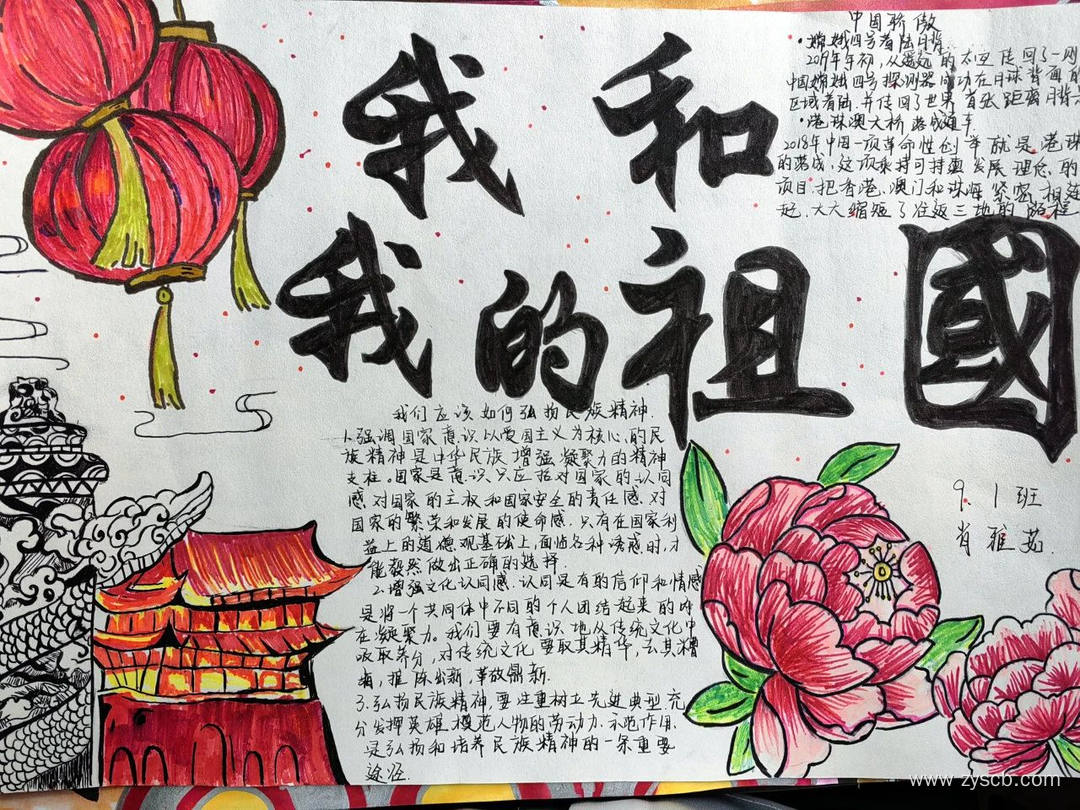 我和
我的祖國
中国骄傲
·嫦娥四号着陆月背
2019年年初，从遥远的太空传回了一则
中国嫦娥四号探测器成功在月球背面的
区域着陆，并传回了世界首张距离月背
·港珠澳大桥落成通车
2018年中国一项革命性创举就是港珠
的落成，这项秉持可持续发展理念，的
项目，把香港、澳门和珠海紧密相连
起，大大缩短了往返三地的路程
我们应该如何弘扬民族精神.
1.强调国家意识以爱国主义为核心的民
族精神是中华民族增强凝聚力的精神
支柱。国家是意识只应括对国家的认同
感对国家的主权和国家安全的责任感.对
国家的繁荣和发展的使命感.只有在国家利
益上的道德观基础上,面临各种诱惑时,才
能毅然做出正确的选择.
2.增强文化认同感.认同是有的信仰和情感
是将一个共同体中不同的个人团结起来的内
在凝聚力。我们要有意识地从传统文化中
吸取养分,对传统文化要取其精华,去其糟
粕,推陈出新,革故鼎新.
3.弘扬民族精神,要注重树立先进典型充
分发挥英雄模范人物的劳动力.示范作用.
是弘扬和培养民族精神的一条重要
途径.
9.1班
肖雅茹.
www.zyscb.com